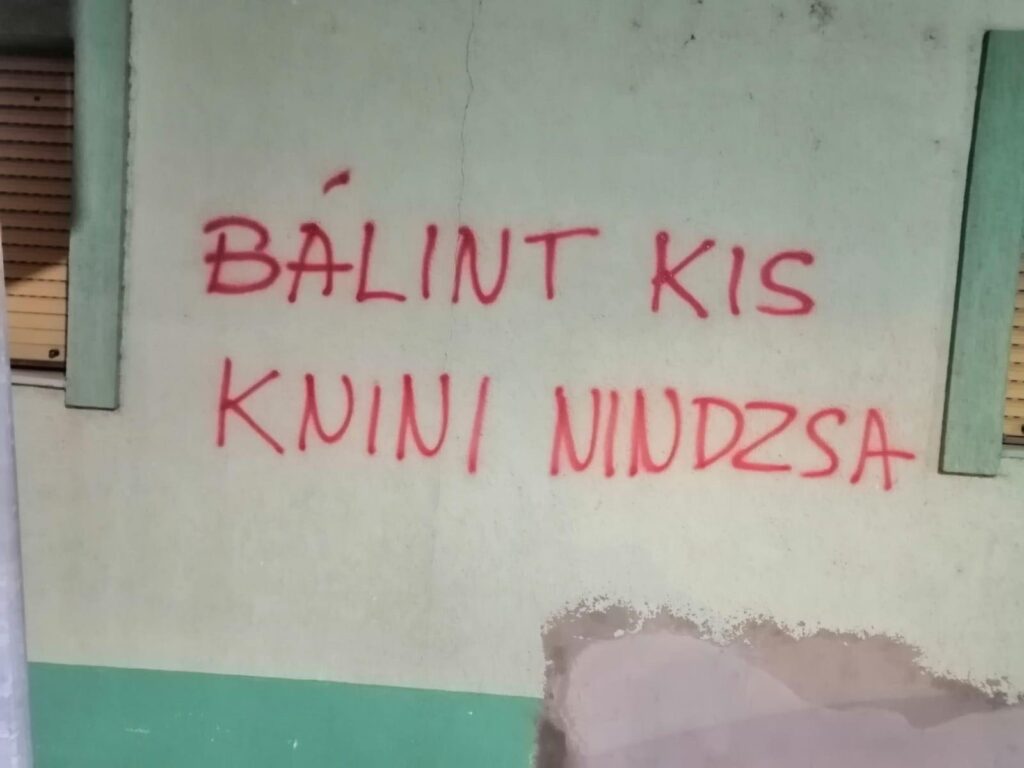 BÁLINT KIS
KNINI NINDZSA